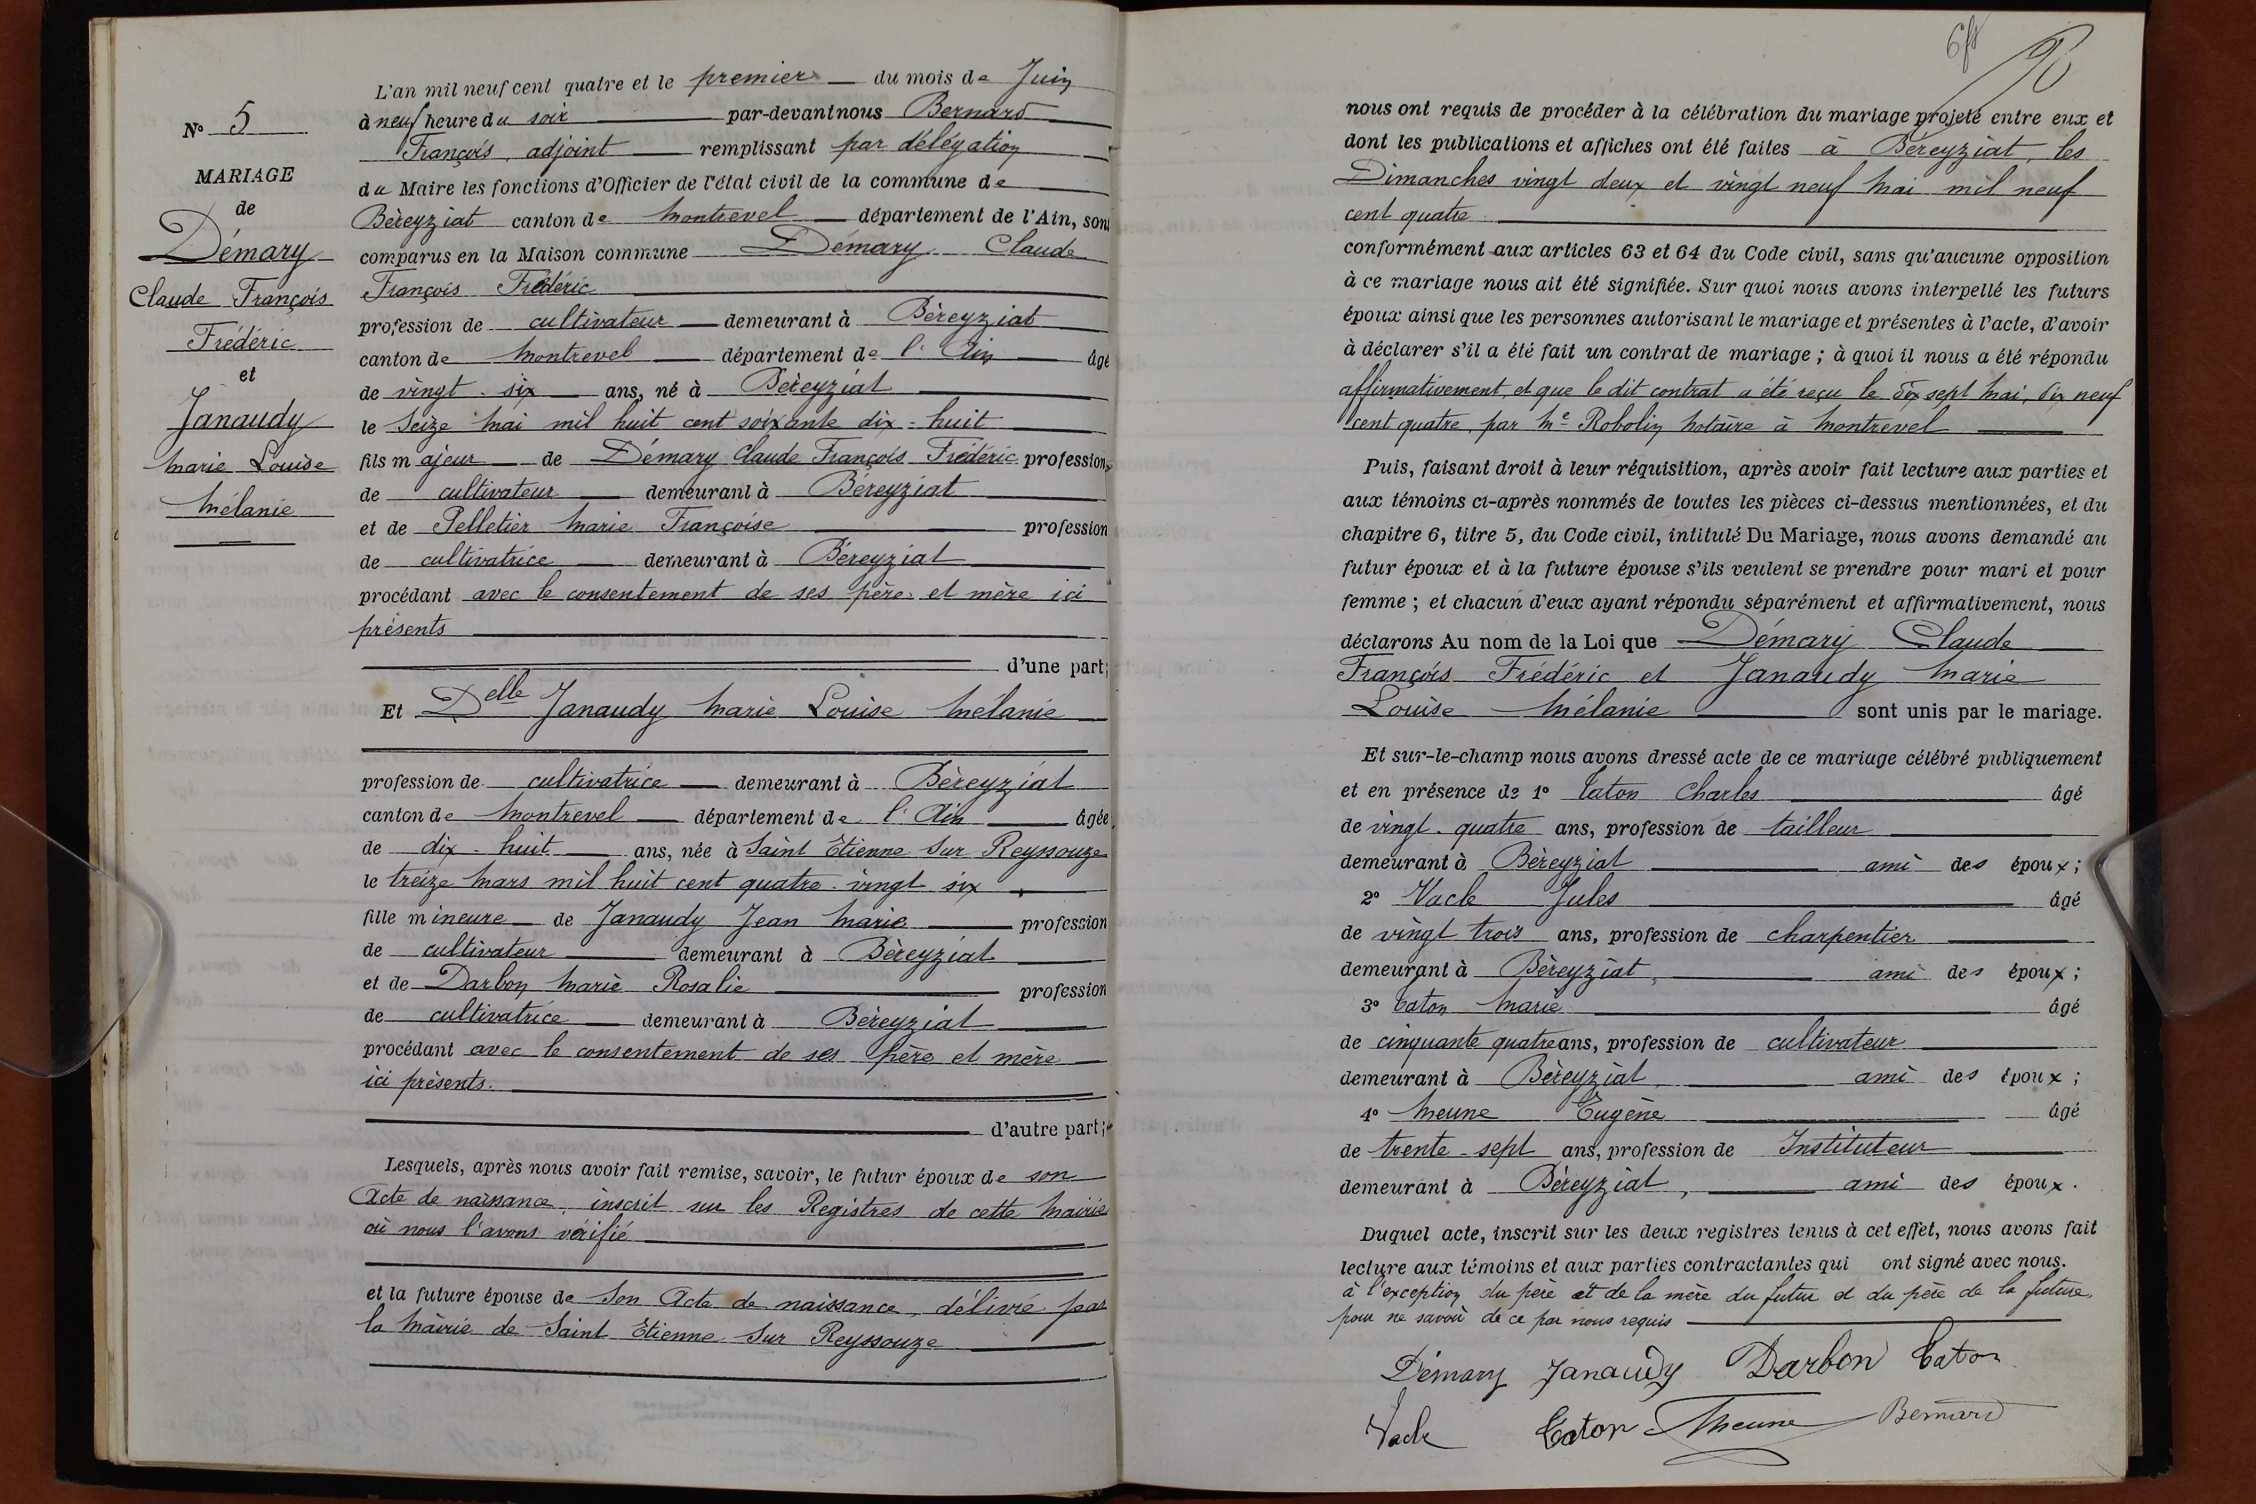 N° 5
MARIAGE
de
Démary
Claude François
Frédéric
et
Janaudy
Marie Louise
Mélanie
L'an mil neuf cent quatre et le premier du mois de Juin
à neuf heure du soir par-devant nous Bernard
François, adjoint remplissant par délégation
du Maire les fonctions d'Officier de l'état civil de la commune de
Béreyziat canton de Montrevel département de l'Ain, sont
comparus en la Maison commune Démary Claude
François Frédéric
profession de cultivateur demeurant à Béreyziat
canton de Montrevel département de l'Ain âgé
de vingt-six ans, né à Béreyziat
le Seize Mai mil huit cent soixante dix-huit
fils majeur de Démary Claude François Frédéric profession
de cultivateur demeurant à Béreyziat
et de Pelletier Marie Françoise profession
de cultivatrice demeurant à Béreyziat
procédant avec le consentement de ses père et mère ici
présents
d'une part;
Et Delle Janaudy Marie Louise Mélanie
profession de cultivatrice demeurant à Béreyziat
canton de Montrevel département de l'Ain âgée
de dix-huit ans, née à Saint Etienne Sur Reyssouze
le treize Mars mil huit cent quatre-vingt six
fille mineure de Janaudy Jean Marie profession
de cultivateur demeurant à Béreyziat
et de Darbon Marie Rosalie profession
de cultivatrice demeurant à Béreyziat
procédant avec le consentement de ses père et mère
ici présents.
d'autre part;
Lesquels, après nous avoir fait remise, savoir, le futur époux de son
Acte de naissance, inscrit sur les Registres de cette Mairie
où nous l'avons vérifié
et la future épouse de Son Acte de naissance, délivré par
la Mairie de Saint Etienne Sur Reyssouze
nous ont requis de procéder à la célébration du mariage projeté entre eux et
dont les publications et affiches ont été faites à Béreyziat, les
Dimanches vingt deux et vingt neuf Mai mil neuf
cent quatre
conformément aux articles 63 et 64 du Code civil, sans qu'aucune opposition
à ce mariage nous ait été signifiée. Sur quoi nous avons interpellé les futurs
époux ainsi que les personnes autorisant le mariage et présentes à l'acte, d'avoir
à déclarer s'il a été fait un contrat de mariage ; à quoi il nous a été répondu
affirmativement, et que le dit contrat a été reçu le dix sept Mai, dix neuf
cent quatre, par Me Robolin Notaire à Montrevel
Puis, faisant droit à leur réquisition, après avoir fait lecture aux parties et
aux témoins ci-après nommés de toutes les pièces ci-dessus mentionnées, et du
chapitre 6, titre 5, du Code civil, intitulé Du Mariage, nous avons demandé au
futur époux et à la future épouse s'ils veulent se prendre pour mari et pour
femme ; et chacun d'eux ayant répondu séparément et affirmativement, nous
déclarons Au nom de la Loi que Démary Claude
François Frédéric et Janaudy Marie
Louise Mélanie sont unis par le mariage.
Et sur-le-champ nous avons dressé acte de ce mariage célébré publiquement
et en présence de 1° Caton Charles âgé
de vingt-quatre ans, profession de tailleur
demeurant à Béreyziat ami des époux ;
2° Vacle Jules âgé
de vingt trois ans, profession de charpentier
demeurant à Béreyziat, ami des époux ;
3° Caton Marie âgé
de cinquante quatre ans, profession de cultivateur
demeurant à Béreyziat, ami des époux ;
4° Meune Eugène âgé
de trente-sept ans, profession de Instituteur
demeurant à Béreyziat, ami des époux.
Duquel acte, inscrit sur les deux registres tenus à cet effet, nous avons fait
lecture aux témoins et aux parties contractantes qui ont signé avec nous.
à l'exception du père et de la mère du futur et du père de la future,
pour ne savoir de ce par nous requis
Démary Janaudy Darbon Caton
Vacle Caton Meune Bernard